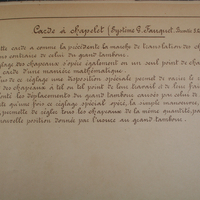 Carde à chapelet (Système G. Fauquet.
cette carde a comme la précédente la marche de translation des ch
sens contraire de celui du grand tambour.
réglage des chapeaux s'opère également en un seul point de cha
carde d'une manière mathématique.
plus de ce réglage une disposition spéciale permet de varier le
des chapeaux à tel ou tel point de leur travail et de leur fai
toute les déplacements du grand tambour causés par celui de
qu'une fois ce réglage spécial opéré, la simple manoeuvre
permette de régler tous les chapeaux de la même quantité, pa
nouvelle position donnée par l'usure au grand tambour.